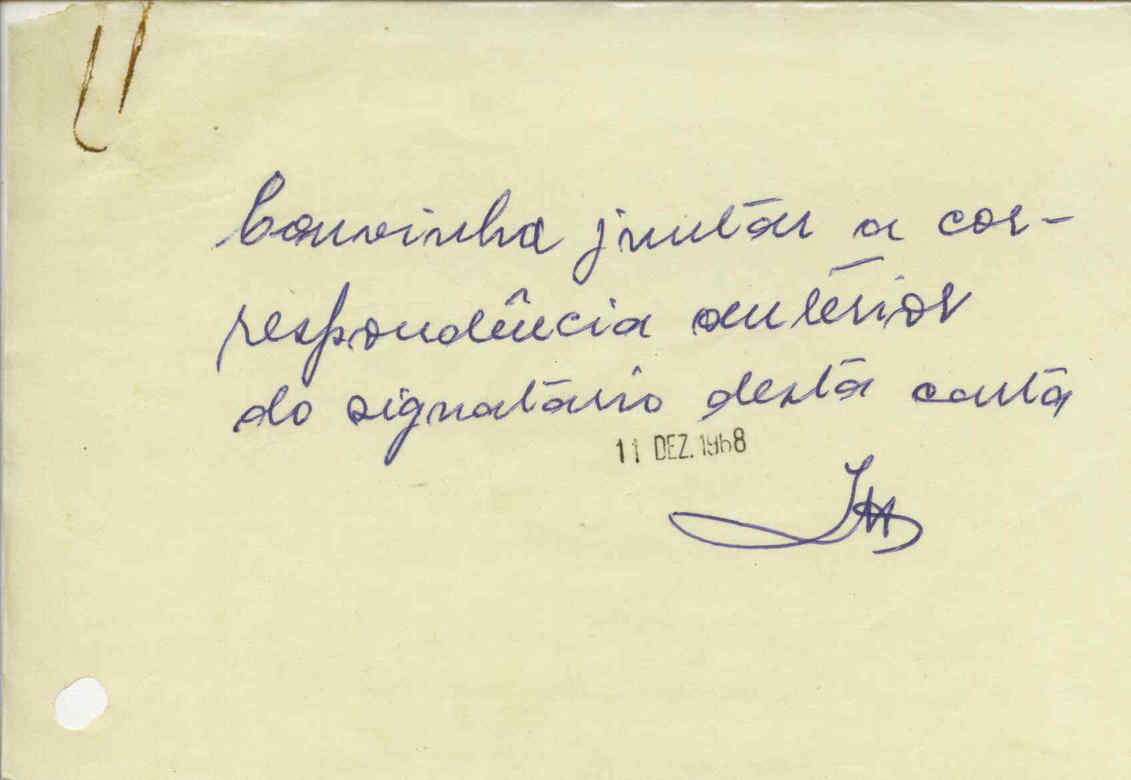 Convinha juntar a cor-
respondência anterior
do signatário desta carta
11 DEZ. 1968